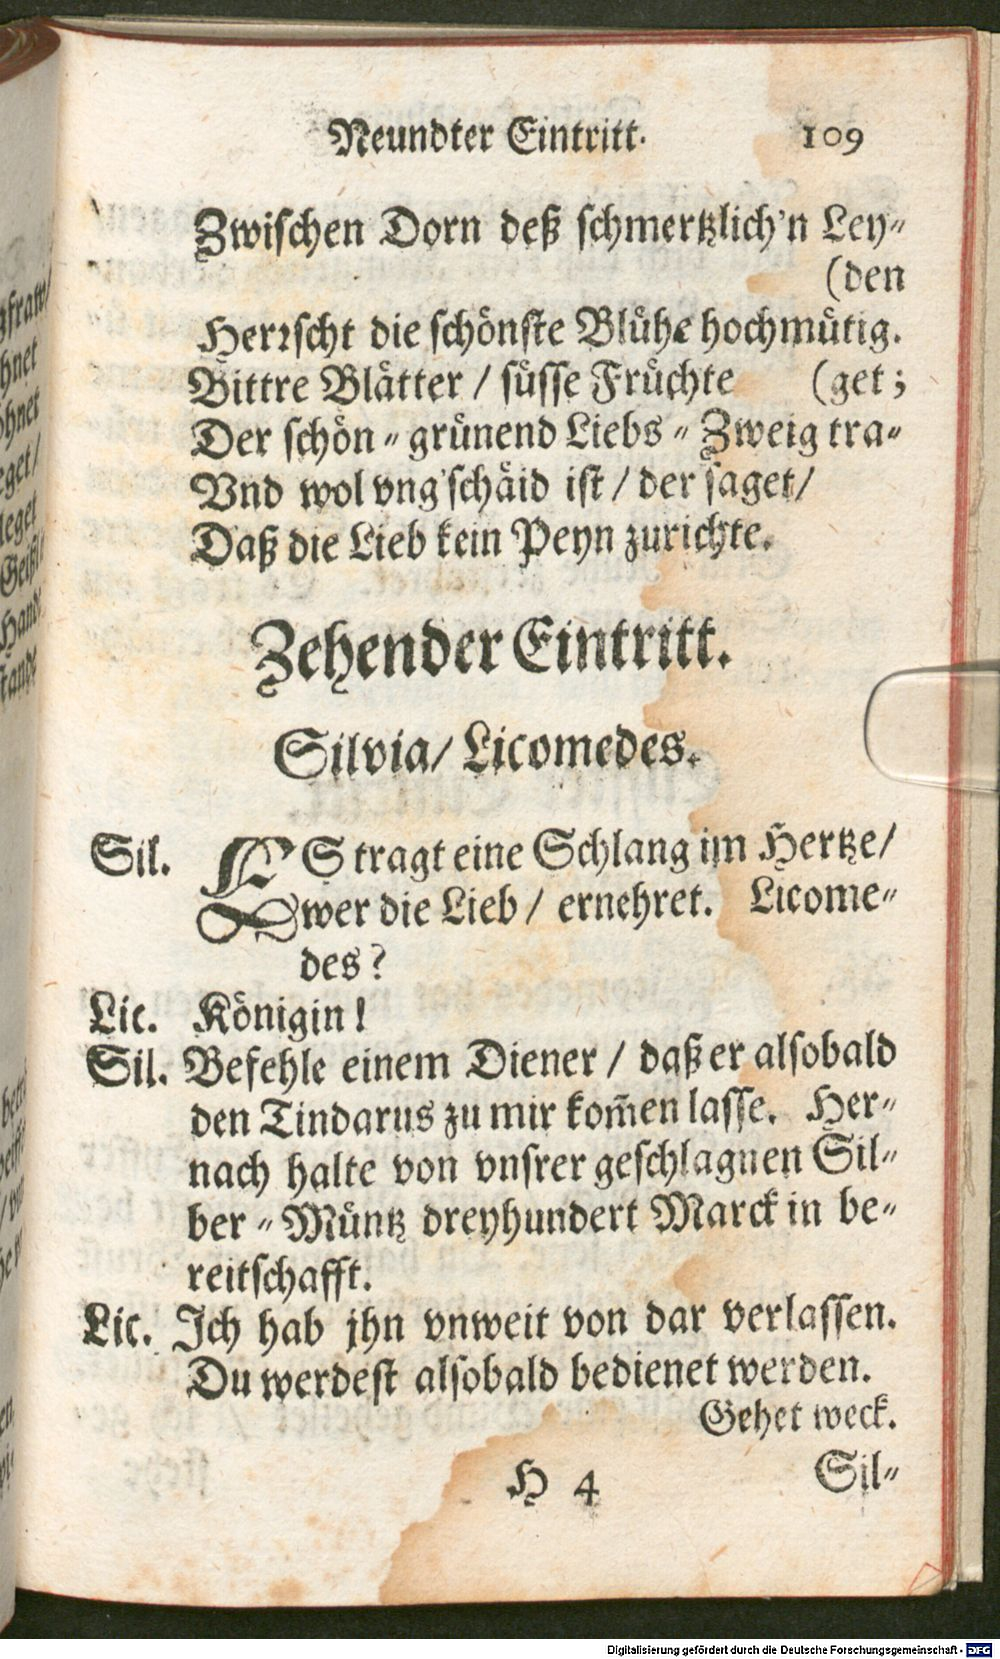 Neundter Eintritt. 109
Zwischen Dorn deß schmertzlich'n Ley-
(den
Herrscht die schönste Blühe hochmütig.
Bittre Blätter / süsse Früchte (get;
Der schön-grünend Liebs-Zweig tra-
Vnd wol vng'schäid ist / der saget /
Daß die Lieb kein Peyn zurichte.
Zehender Eintritt.
Silvia / Licomedes.
Sil. ES tragt eine Schlang im Hertze /
wer die Lieb / ernehret. Licome-
des?
Lic. Königin!
Sil. Befehle einem Diener / daß er alsobald
den Tindarus zu mir kom̃en lasse. Her-
nach halte von vnsrer geschlagnen Sil-
ber-Müntz dreyhundert Marck in be-
reitschafft.
Lic. Ich hab jhn vnweit von dar verlassen.
Du werdest alsobald bedienet werden.
Gehet weck.
H 4 Sil-
Digitalisierung gefördert durch die Deutsche Forschungsgemeinschaft - DFG